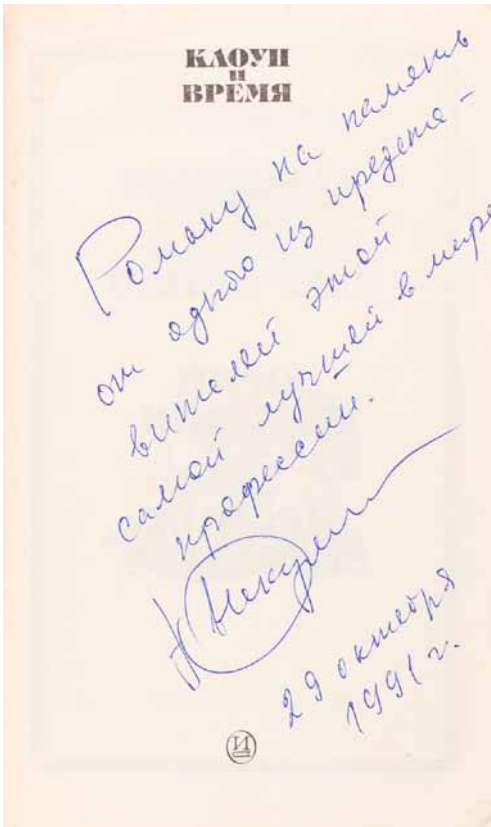 КЛОУН
И
ВРЕМЯ
Роману на память
от одного из предста-
вителей этой
самой лучшей в мире
профессии.
Никулин
29 октября
1991 г.
И